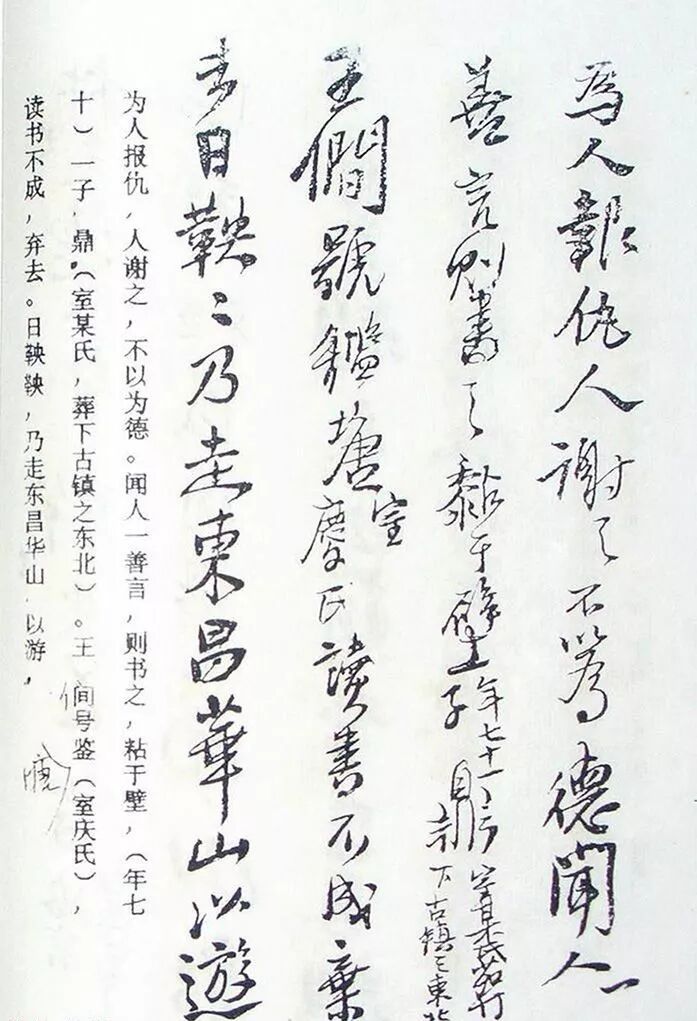 為人報仇人謝之不以為德聞人一
善言則書之黏于壁年七十一子鼎室某氏葬下古鎮之東北
王僩號鑑堂室慶氏讀書不成棄
去日鞅〻乃走東昌華山以遊
为人报仇，人谢之，不以为德。闻人一善言，则书之，粘于壁，（年七
十）一子，鼎。（室某氏，葬下古镇之东北）。王僩号鉴（室庆氏），
读书不成，弃去。日鞅鞅，乃走东昌华山以游，